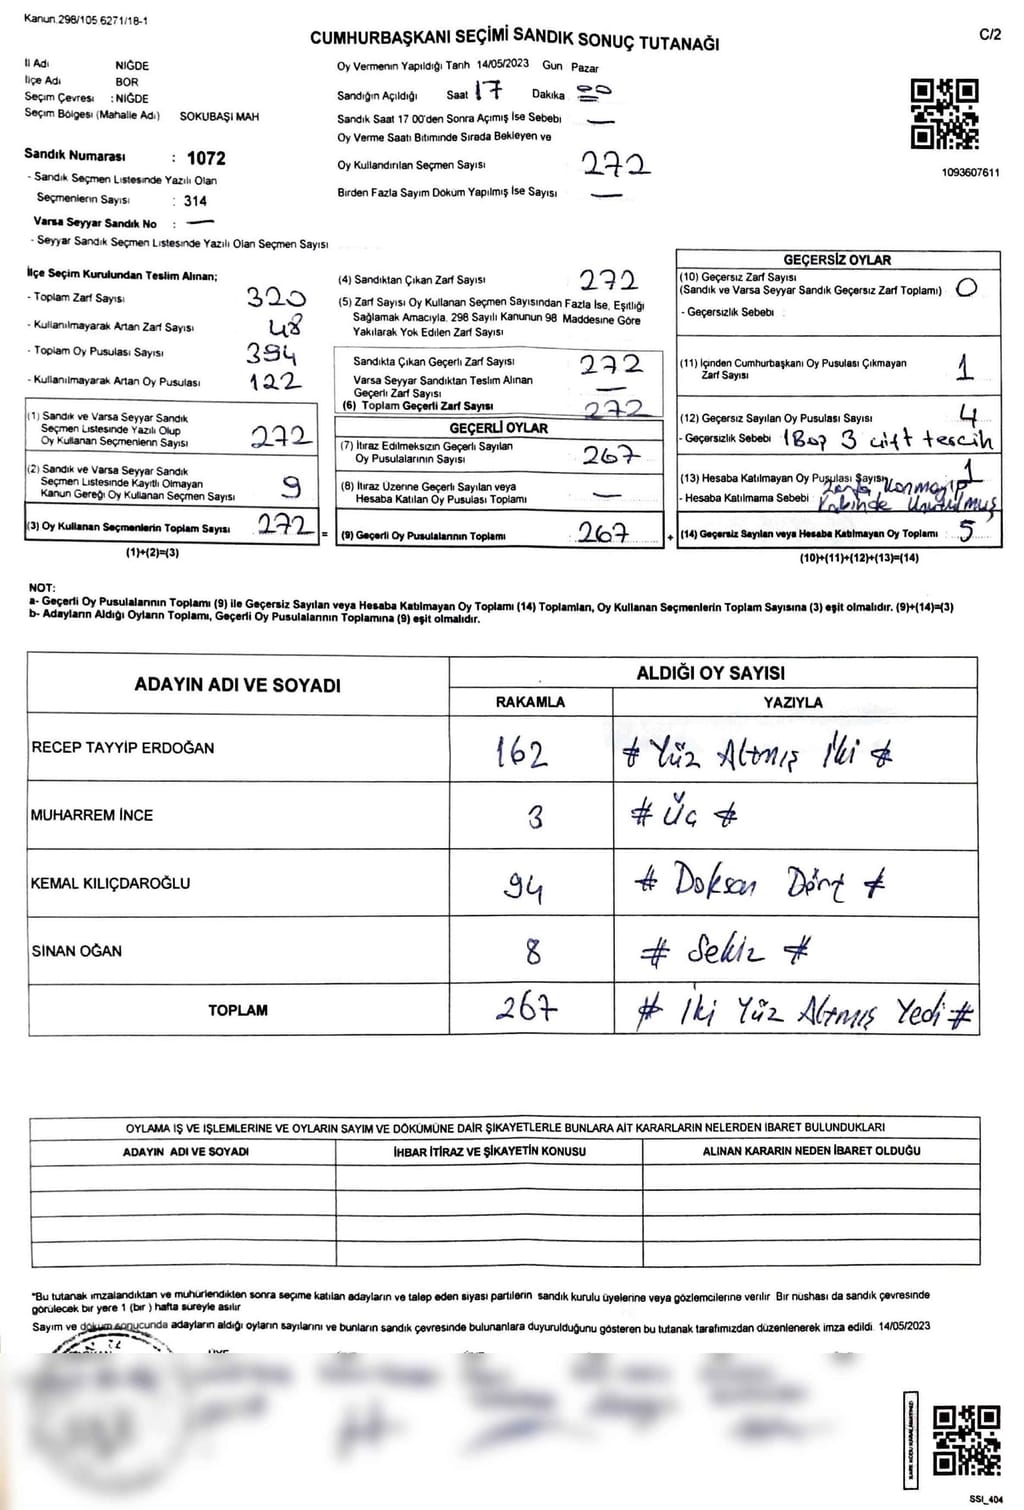 Kanun.298/105 6271/18-1
C/2
CUMHURBAŞKANI SEÇİMİ SANDIK SONUÇ TUTANAĞI
İl Adı NİĞDE
İlçe Adı BOR
Seçim Çevresi : NİĞDE
Seçim Bölgesi (Mahalle Adı) SOKUBAŞI MAH
Sandık Numarası : 1072
- Sandık Seçmen Listesinde Yazılı Olan
Seçmenlerin Sayısı : 314
Varsa Seyyar Sandık No : —
- Seyyar Sandık Seçmen Listesinde Yazılı Olan Seçmen Sayısı
Oy Vermenin Yapıldığı Tarih 14/05/2023 Gün Pazar
Sandığın Açıldığı Saat 17 Dakika 00
Sandık Saat 17 00'den Sonra Açımış İse Sebebi —
Oy Verme Saati Bitiminde Sırada Bekleyen ve
Oy Kullandırılan Seçmen Sayısı 272
Birden Fazla Sayım Döküm Yapılmış İse Sayısı —
1093607611
İlçe Seçim Kurulundan Teslim Alınan;
- Toplam Zarf Sayısı 320
- Kullanılmayarak Artan Zarf Sayısı 48
- Toplam Oy Pusulası Sayısı 394
- Kullanılmayarak Artan Oy Pusulası 122
(1) Sandık ve Varsa Seyyar Sandık
Seçmen Listesinde Yazılı Olup
Oy Kullanan Seçmenlerin Sayısı 272
(2) Sandık ve Varsa Seyyar Sandık
Seçmen Listesinde Kayıtlı Olmayan
Kanun Gereği Oy Kullanan Seçmen Sayısı 9
(3) Oy Kullanan Seçmenlerin Toplam Sayısı 272 =
(1)+(2)=(3)
(4) Sandıktan Çıkan Zarf Sayısı 272
(5) Zarf Sayısı Oy Kullanan Seçmen Sayısından Fazla İse, Eşitliği
Sağlamak Amacıyla. 298 Sayılı Kanunun 98 Maddesine Göre
Yakılarak Yok Edilen Zarf Sayısı
Sandıkta Çıkan Geçerli Zarf Sayısı 272
Varsa Seyyar Sandıktan Teslim Alınan
Geçerli Zarf Sayısı —
(6) Toplam Geçerli Zarf Sayısı 272
GEÇERLİ OYLAR
(7) İtiraz Edilmeksizin Geçerli Sayılan
Oy Pusulalarının Sayısı 267
(8) İtiraz Üzerine Geçerli Sayılan veya
Hesaba Katılan Oy Pusulası Toplamı —
(9) Geçerli Oy Pusulalarının Toplamı 267 +
GEÇERSİZ OYLAR
(10) Geçersiz Zarf Sayısı
(Sandık ve Varsa Seyyar Sandık Geçersiz Zarf Toplamı) 0
- Geçersizlik Sebebi :
(11) İçinden Cumhurbaşkanı Oy Pusulası Çıkmayan
Zarf Sayısı 1
(12) Geçersiz Sayılan Oy Pusulası Sayısı 4
- Geçersizlik Sebebi 1 Boş 3 çift tescih
(13) Hesaba Katılmayan Oy Pusulası Sayısı 1
- Hesaba Katılmama Sebebi Zarfa Konmayıp
Kabinde Unutulmuş
(14) Geçersiz Sayılan veya Hesaba Katılmayan Oy Toplamı 5
(10)+(11)+(12)+(13)=(14)
NOT:
a- Geçerli Oy Pusulalarının Toplamı (9) ile Geçersiz Sayılan veya Hesaba Katılmayan Oy Toplamı (14) Toplamları, Oy Kullanan Seçmenlerin Toplam Sayısına (3) eşit olmalıdır. (9)+(14)=(3)
b- Adayların Aldığı Oyların Toplamı, Geçerli Oy Pusulalarının Toplamına (9) eşit olmalıdır.
ADAYIN ADI VE SOYADI ALDIĞI OY SAYISI
RAKAMLA YAZIYLA
RECEP TAYYİP ERDOĞAN 162 # Yüz Altmış İki #
MUHARREM İNCE 3 # Üç #
KEMAL KILIÇDAROĞLU 94 # Doksan Dört #
SİNAN OĞAN 8 # Sekiz #
TOPLAM 267 # İki Yüz Altmış Yedi #
OYLAMA İŞ VE İŞLEMLERİNE VE OYLARIN SAYIM VE DÖKÜMÜNE DAİR ŞİKAYETLERLE BUNLARA AİT KARARLARIN NELERDEN İBARET BULUNDUKLARI
ADAYIN ADI VE SOYADI İHBAR İTİRAZ VE ŞİKAYETİN KONUSU ALINAN KARARIN NEDEN İBARET OLDUĞU
*Bu tutanak imzalandıktan ve mühürlendikten sonra seçime katılan adayların ve talep eden siyasi partilerin sandık kurulu üyelerine veya gözlemcilerine verilir Bir nüshası da sandık çevresinde
görülecek bir yere 1 (bir ) hafta süreyle asılır
Sayım ve döküm sonucunda adayların aldığı oyların sayılarını ve bunların sandık çevresinde bulunanlara duyurulduğunu gösteren bu tutanak tarafımızdan düzenlenerek imza edildi. 14/05/2023
SSI_404